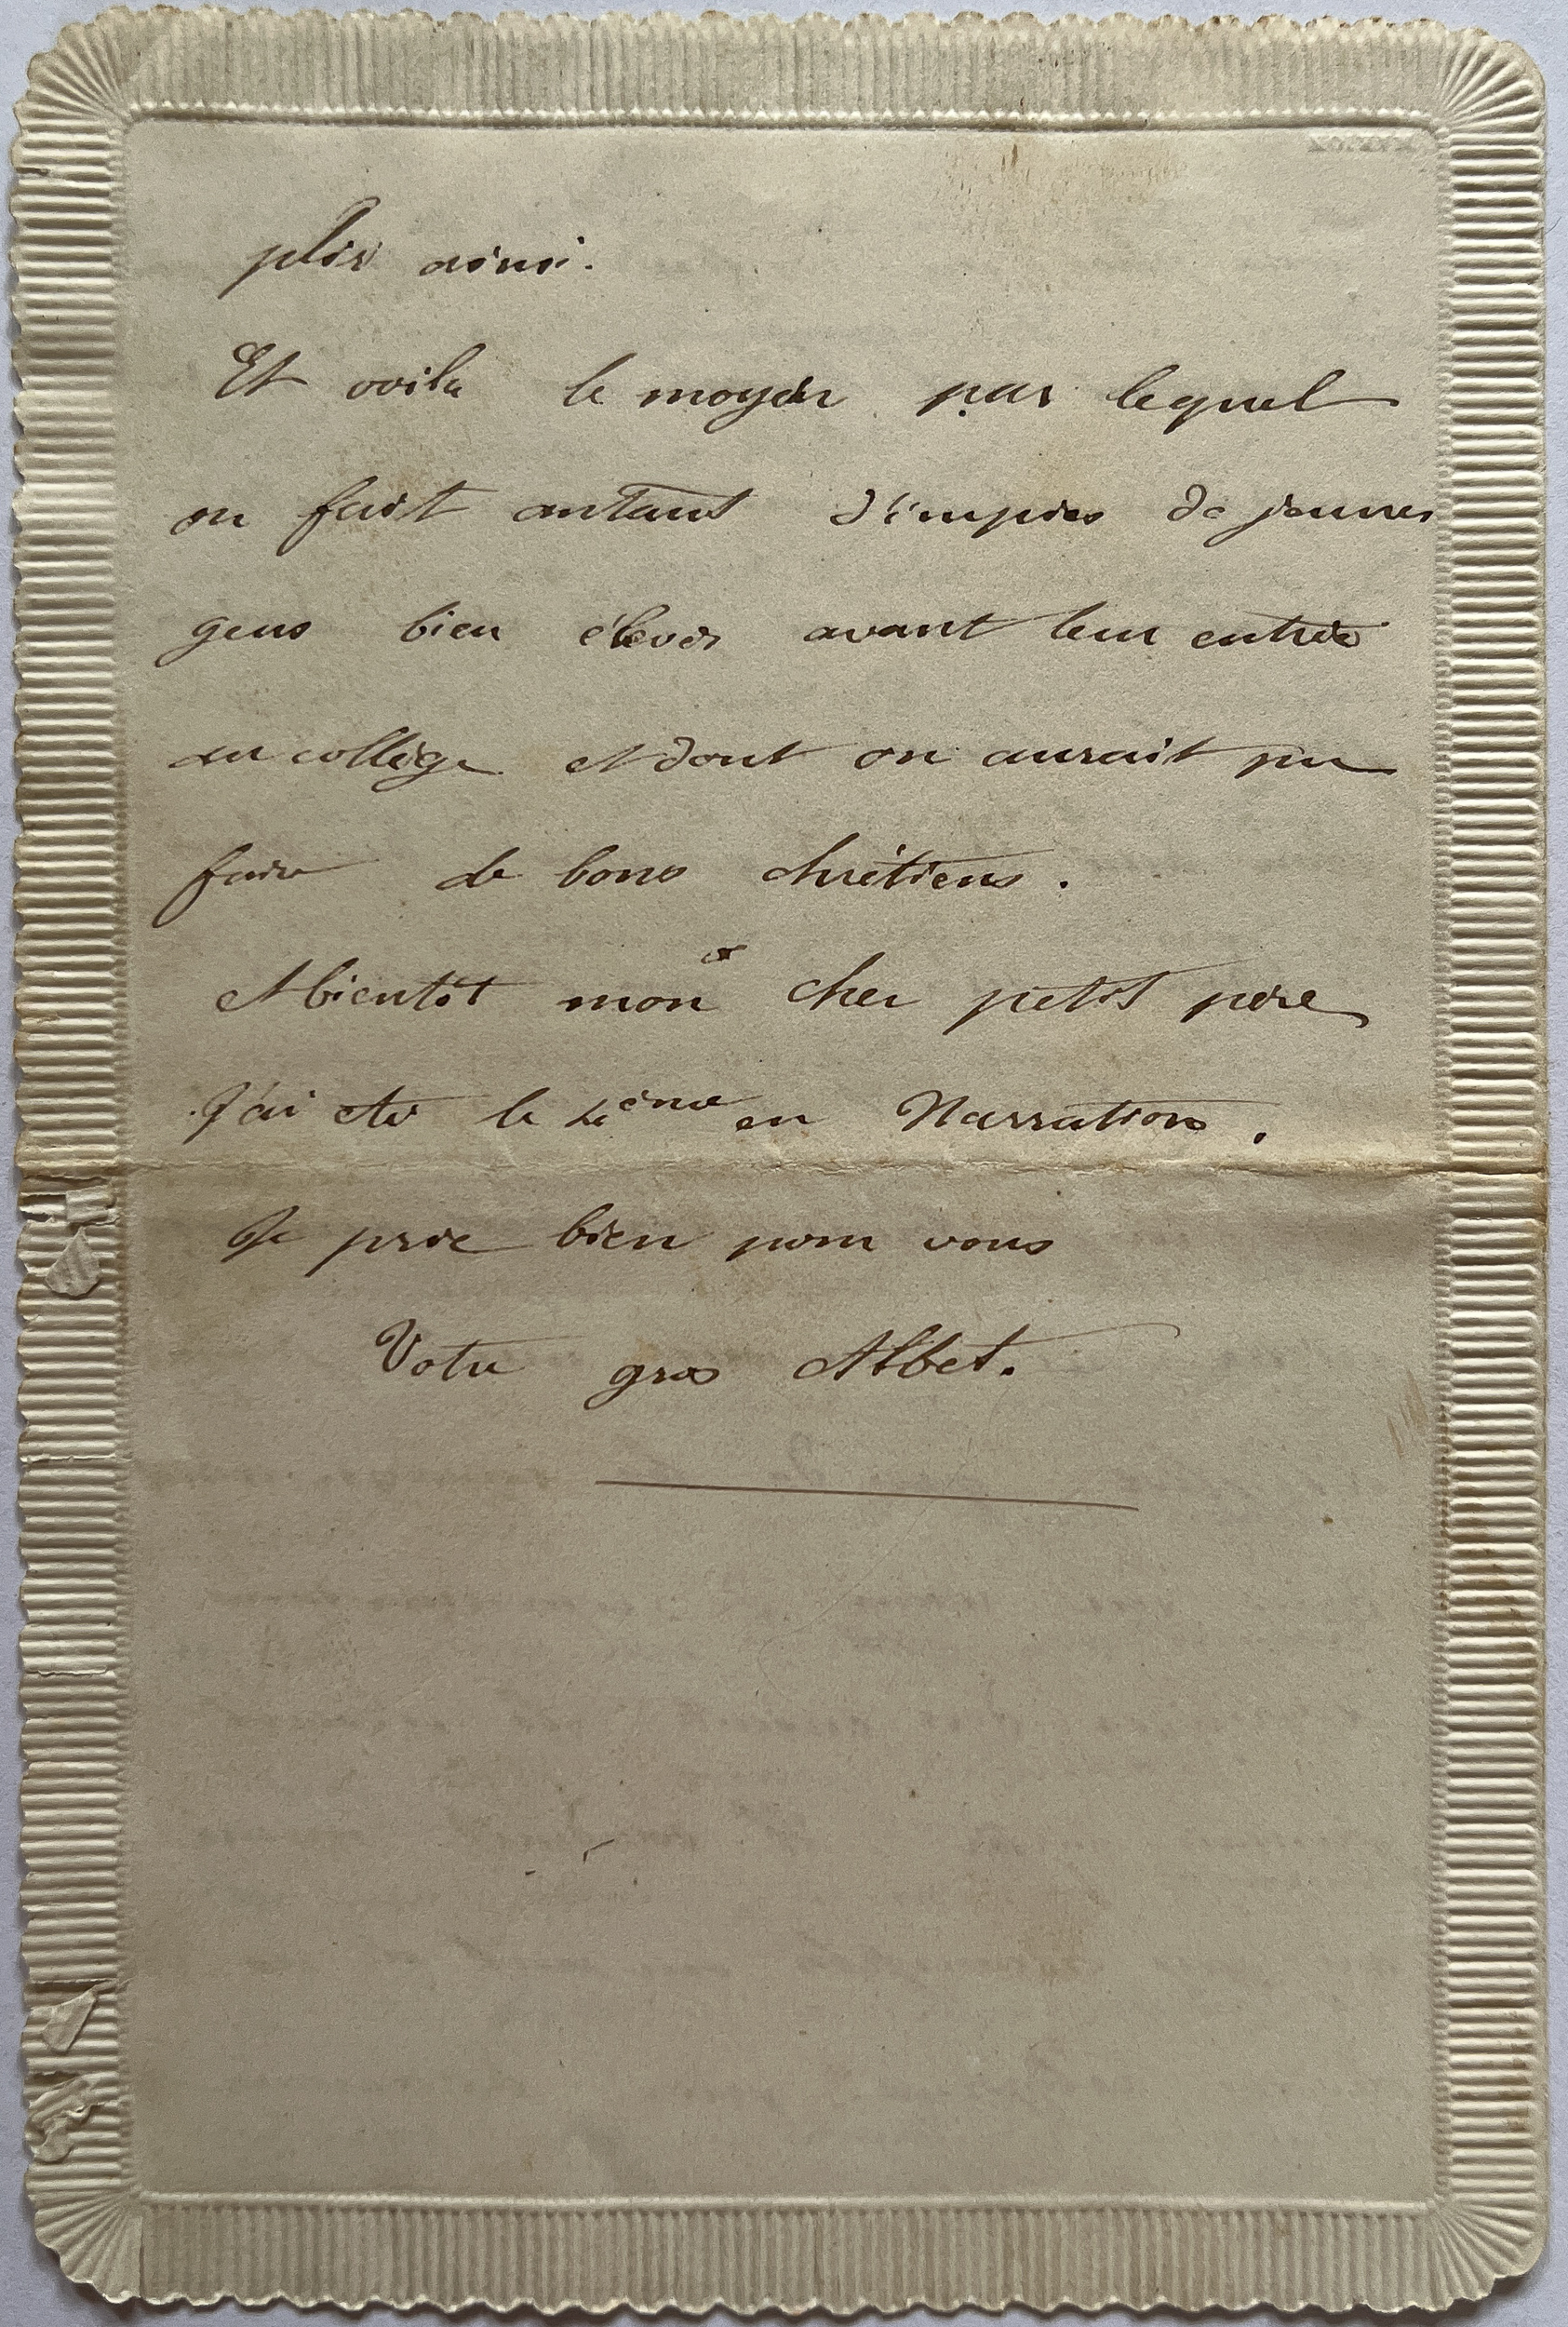 plis ainsi.
Et voila le moyen par lequel
on fait autant d'impies de jeunes
gens bien élevés avant leur entrée
au collège et dont on aurait pu
faire de bons chrétiens.
A bientôt mon cher petit père
J'ai été le 4ème en Narration.
Je prie bien pour vous
Votre gros Albet.